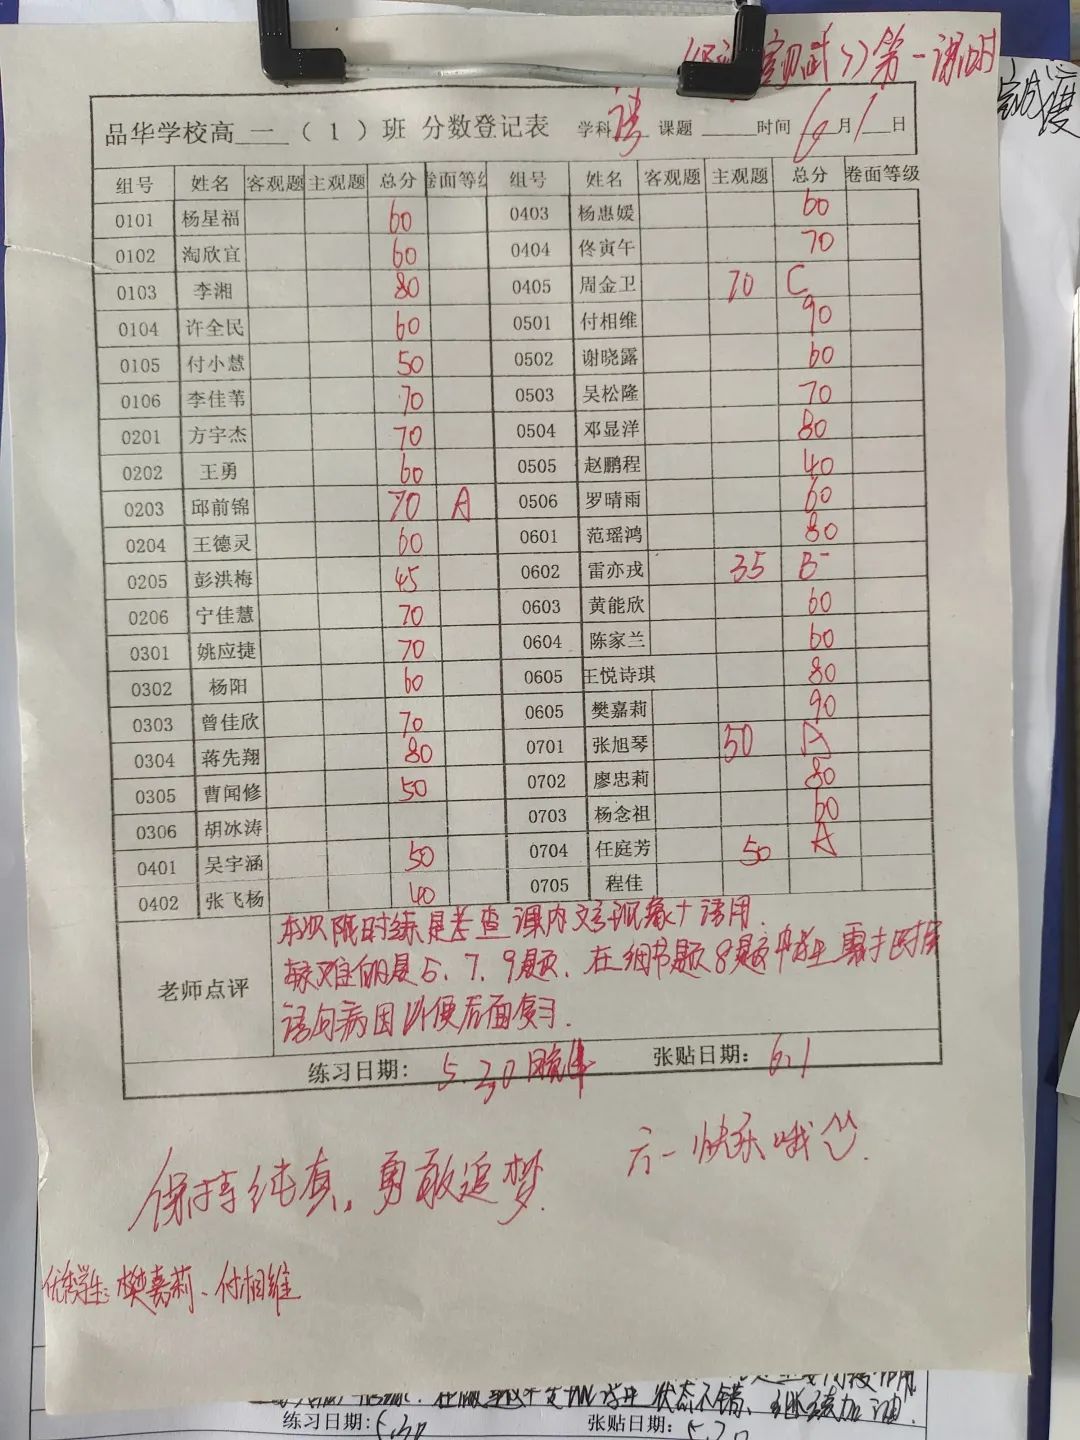 第一课时
品华学校高 一 （ 1 ）班 分数登记表 学科 语 课题 时间 6月1日
组号 姓名 客观题 主观题 总分 卷面等级 组号 姓名 客观题 主观题 总分 卷面等级
0101 杨星福 60 0403 杨惠媛 60
0102 淘欣宜 60 0404 佟寅午 70
0103 李湘 80 0405 周金卫 70 C
0104 许全民 60 0501 付相维 90
0105 付小慧 50 0502 谢晓露 60
0106 李佳苇 70 0503 吴松隆 70
0201 方宇杰 70 0504 邓显洋 80
0202 王勇 60 0505 赵鹏程 40
0203 邱前锦 70 A 0506 罗晴雨 60
0204 王德灵 60 0601 范瑶鸿 80
0205 彭洪梅 45 0602 雷亦戎 35 B-
0206 宁佳慧 70 0603 黄能欣 60
0301 姚应捷 70 0604 陈家兰 60
0302 杨阳 60 0605 王悦诗琪 80
0303 曾佳欣 70 0605 樊嘉莉 90
0304 蒋先翔 80 0701 张旭琴 50 A
0305 曹闻修 50 0702 廖忠莉 80
0306 胡冰涛 0703 杨念祖 60
0401 吴宇涵 50 0704 任庭芳 50 A
0402 张飞杨 40 0705 程佳
老师点评
本次限时练是考查课内文言现象+语用.
较难的是5.7.9题.在细书题8题中
语句病因以便后面复习.
练习日期: 5.30 张贴日期: 6.1
六一快乐哦
保持纯真,勇敢追梦.
优秀学生:樊嘉莉、付相维
状态不错、继续加油!
练习日期:5.30 张贴日期: